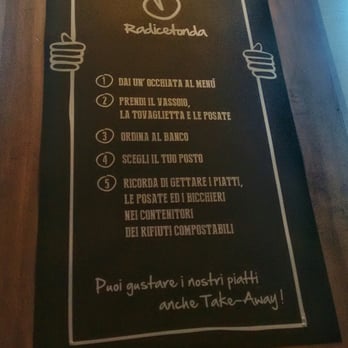 Radicetonda
1 DAI UN' OCCHIATA AL MENÚ
2 PRENDI IL VASSOIO,
LA TOVAGLIETTA E LE POSATE
3 ORDINA AL BANCO
4 SCEGLI IL TUO POSTO
5 RICORDA DI GETTARE I PIATTI,
LE POSATE ED I BICCHIERI
NEI CONTENITORI
DEI RIFIUTI COMPOSTABILI
Puoi gustare i nostri piatti
anche Take-Away!